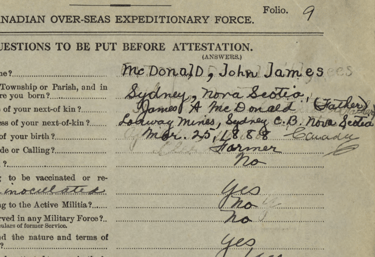 Folio. 9
CANADIAN OVER-SEAS EXPEDITIONARY FORCE.
QUESTIONS TO BE PUT BEFORE ATTESTATION.
(ANSWERS.)
me? McDonald, John James
Township or Parish, and in
re you born? Sydney, Nova Scotia
of your next-of-kin? James A McDonald (Father)
ess of your next-of-kin? Mines, Sydney C.B. Nova Scotia
of your birth? Mar. 25, 1888 Canada
de or Calling? Farmer
? No
g to be vaccinated or re-
noculated Yes
ng to the Active Militia? No
erved in any Military Force? No
ulars of former Service.
d the nature and terms of
Yes